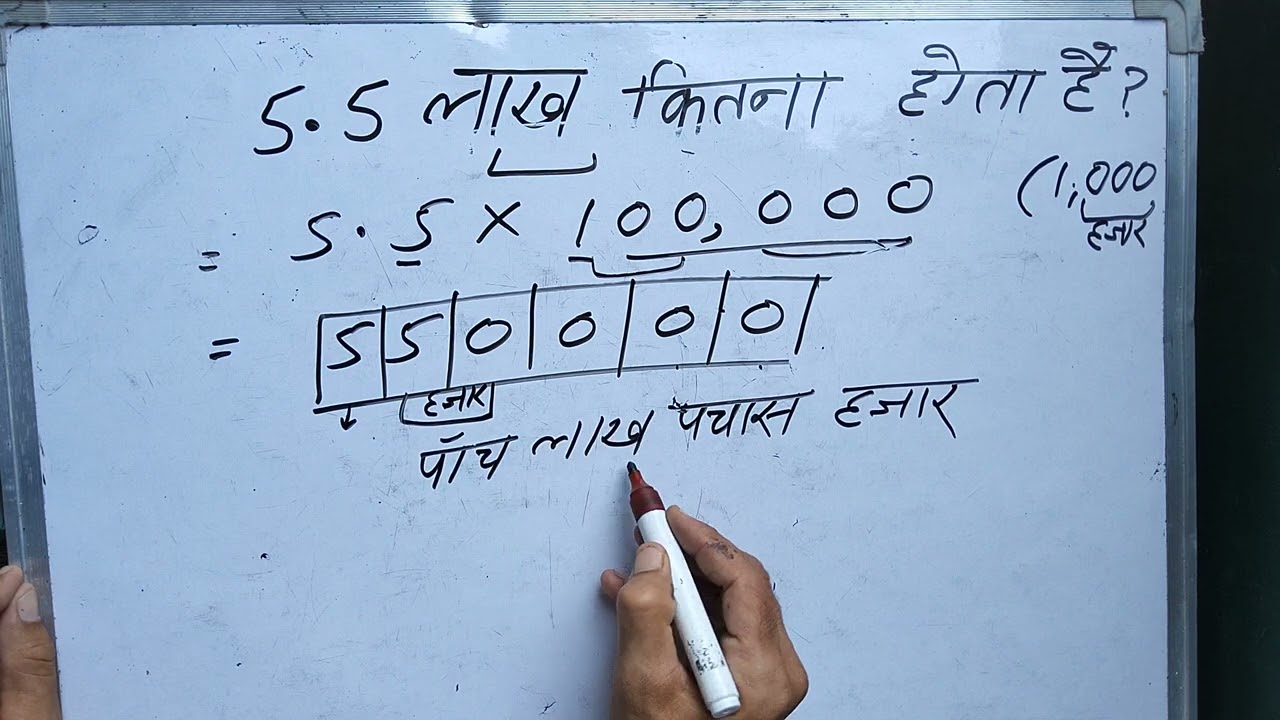 5.5 लाख कितना होता है?
= 5.5 × 100,000 (1,000
हजार
= 5 5 0 0 0 0
हजार
पाँच लाख पचास हजार